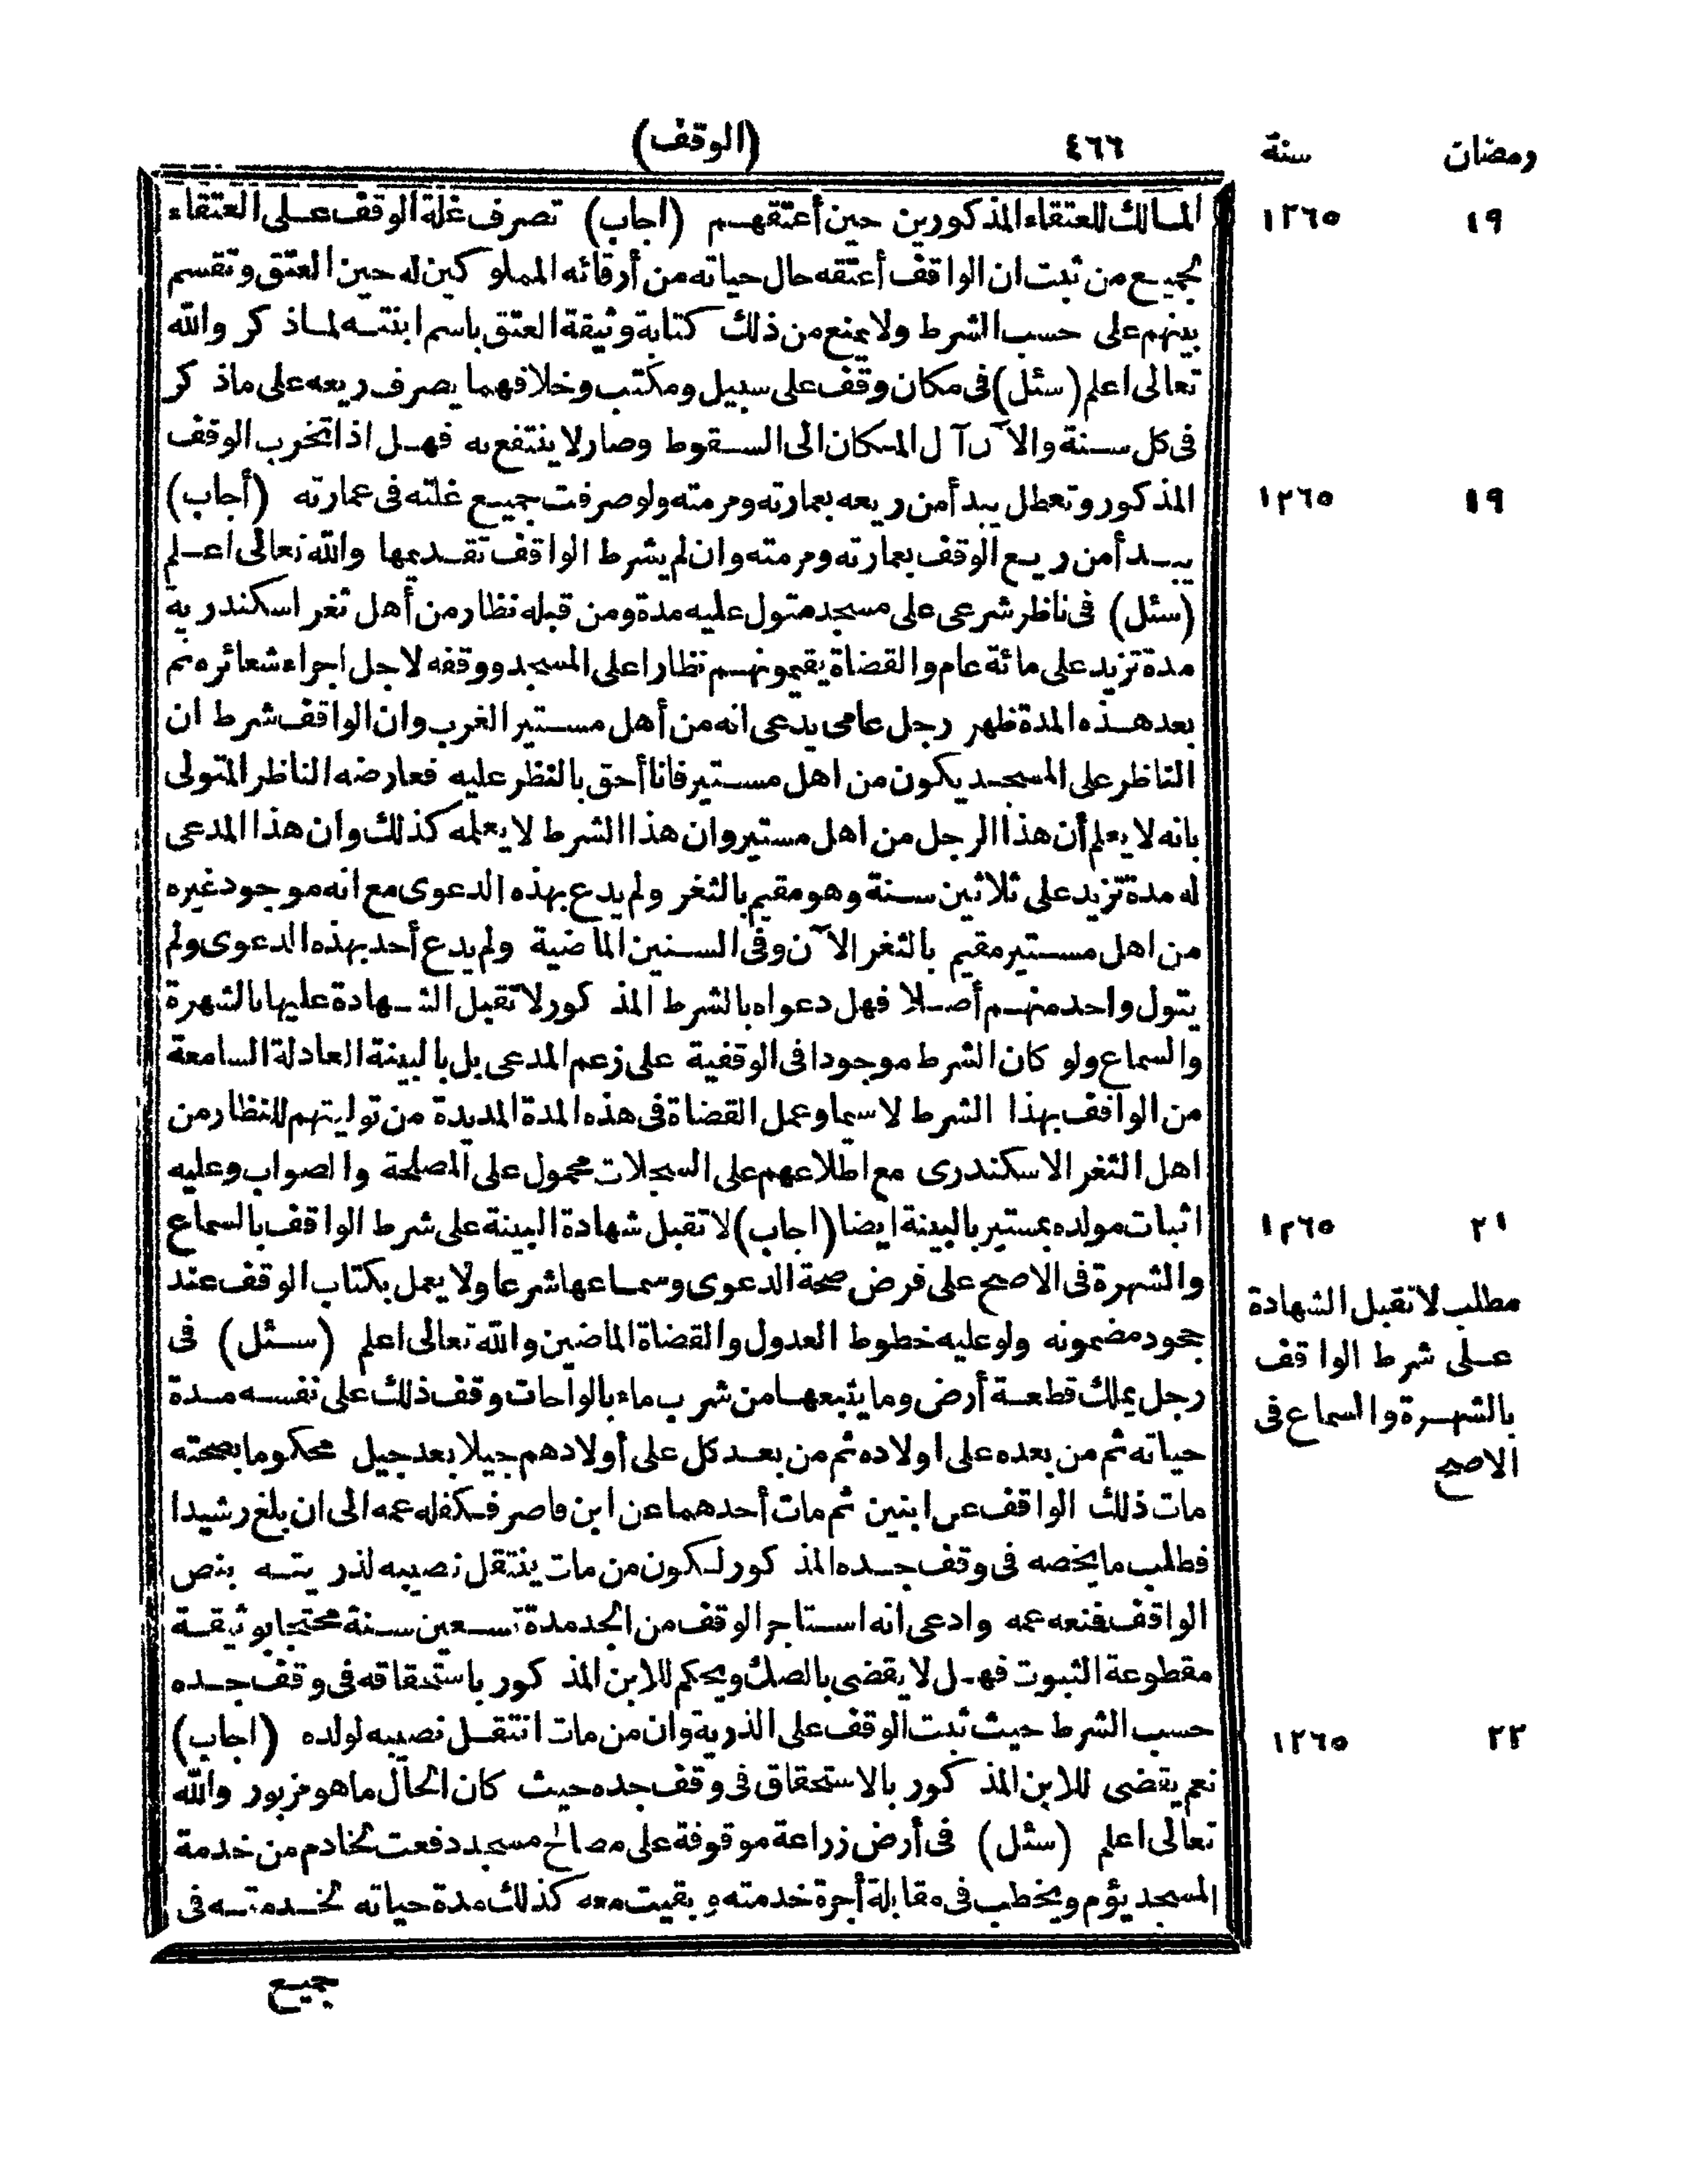 رمضان سنة ٤٦٦ (الوقف)
١٩ ١٢٦٥
المالك للعتقاء المذكورين حين أعتقهم (أجاب) تصرف غلة الوقف على العتقاء
لجميع من ثبت ان الواقف أعتقه حال حياته من أرقائه المملوكين له حين العتق وتقسم
بينهم على حسب الشرط ولا يمنع من ذلك كتابة وثيقة العتق باسم ابنته لماذكر والله
تعالى اعلم (سئل) فى مكان وقف على سبيل ومكتب وخلافهما يصرف ريعه على ماذكر
فى كل سنة والآن آل المكان الى السقوط وصار لا ينتفع به فهل اذا تخرب الوقف
١٩ ١٢٦٥
المذكور وتعطل يبدأ من ريعه بعمارته ومرمته ولو صرفت جميع غلته فى عمارته (أجاب)
يبدأ من ريع الوقف بعمارته ومرمته وان لم يشرط الواقف تقديمها والله تعالى اعلم
(سئل) فى ناظر شرعى على مسجد متول عليه مدة ومن قبله نظار من أهل ثغر اسكندرية
مدة تزيد على مائة عام والقضاة يقيمونهم نظارا على المسجد ووقفه لاجل اجراء شعائره ثم
بعد هذه المدة ظهر رجل عامى يدعى انه من أهل مستير الغرب وان الواقف شرط ان
الناظر على المسجد يكون من اهل مستير فانا أحق بالنظر عليه فعارضه الناظر المتولى
بانه لا يعلم أن هذا الرجل من اهل مستير وان هذا الشرط لا يعلمه كذلك وان هذا المدعى
له مدة تزيد على ثلاثين سنة وهو مقيم بالثغر ولم يدع بهذه الدعوى مع انه موجود غيره
من اهل مستير مقيم بالثغر الآن وفى السنين الماضية ولم يدع أحد بهذه الدعوى ولم
يتول واحد منهم أصلا فهل دعواه بالشرط المذكور لا تقبل الشهادة عليها بالشهرة
والسماع ولو كان الشرط موجودا فى الوقفية على زعم المدعى بل بالبينة العادلة السامعة
من الواقف بهذا الشرط لا سيما وعمل القضاة فى هذه المدة المديدة من توليتهم للنظار من
اهل الثغر الاسكندرى مع اطلاعهم على السجلات محمول على المصلحة والصواب وعليه
٢١ ١٢٦٥
اثبات مولده بمستير بالبينة ايضا (اجاب) لا تقبل شهادة البينة على شرط الواقف بالسماع
والشهرة فى الاصح على فرض صحة الدعوى وسماعها شرعا ولا يعمل بكتاب الوقف عند
مطلب لا تقبل الشهادة
على شرط الواقف
بالشهرة والسماع فى
الاصح
جحود مضمونه ولو عليه خطوط العدول والقضاة الماضين والله تعالى اعلم (سئل) فى
رجل يملك قطعة أرض وما يتبعها من شرب ماء بالواحات وقف ذلك على نفسه مدة
حياته ثم من بعده على اولاده ثم من بعد كل على أولادهم جيلا بعد جيل محكوما بصحته
مات ذلك الواقف عن ابنين ثم مات أحدهما عن ابن قاصر فكفله عمه الى ان بلغ رشيدا
فطلب ما يخصه فى وقف جده المذكور لكون من مات ينتقل نصيبه لذريته بنص
الواقف فمنعه عمه وادعى انه استاجر الوقف من الجد مدة تسعين سنة محتجا بوثيقة
مقطوعة الثبوت فهل لا يقضى بالصك ويحكم للابن المذكور باستحقاقه فى وقف جده
٢٣ ١٢٦٥
حسب الشرط حيث ثبت الوقف على الذرية وان من مات انتقل نصيبه لولده (اجاب)
نعم يقضى للابن المذكور بالاستحقاق فى وقف جده حيث كان الحال ما هو مزبور والله
تعالى اعلم (سئل) فى أرض زراعة موقوفة على مصالح مسجد دفعت لخادم من خدمة
المسجد يؤم ويخطب فى مقابلة أجرة خدمته وبقيت معه كذلك مدة حياته لخدمته فى
جميع